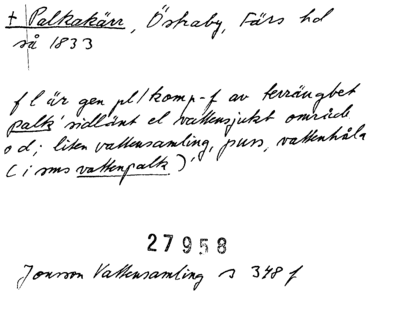 + Palkakärr, Östraby, Färs hd
så 1833
f l är gen pl/komp-f av terrängbet
palk 'sidlänt el vattensjukt område
o d; liten vattensamling, puss, vattenhåla
(i sms vattenpalk)'
27958
Jonsson Vattensamling s 348 f